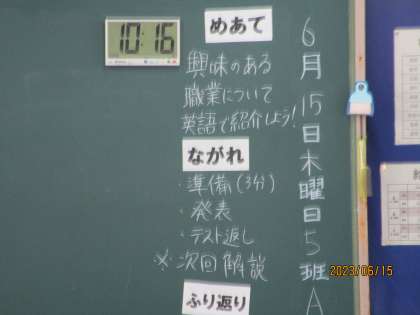 10:16
めあて
興味のある
職業について
英語で紹介しよう!
ながれ
・準備(3分)
・発表
・テスト返し
※次回解説
ふり返り
6月15日木曜日5班A
2023/06/15